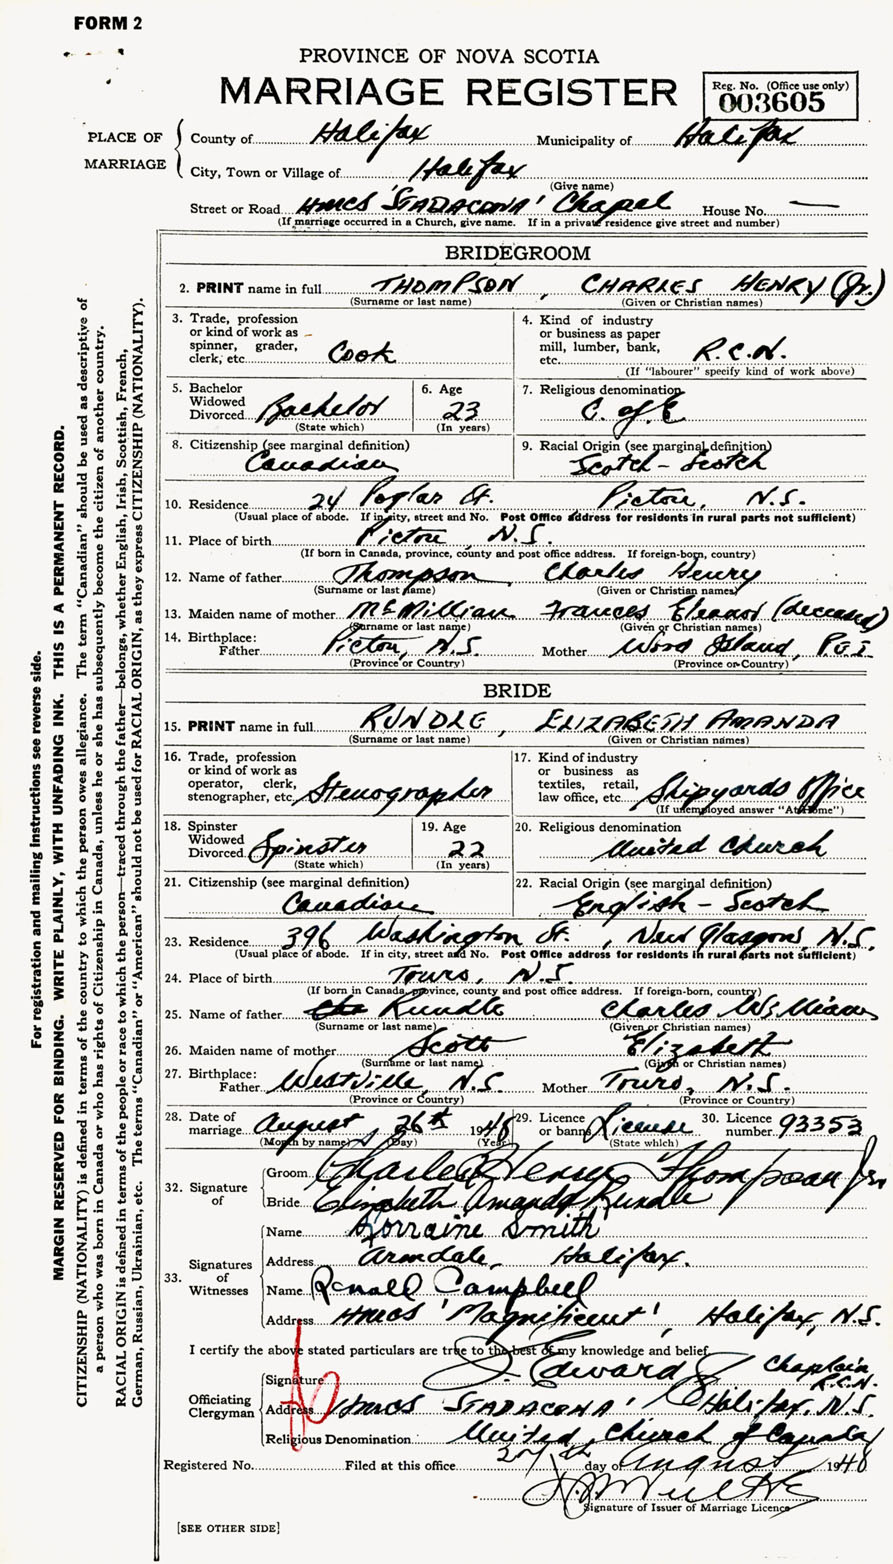 FORM 2
PROVINCE OF NOVA SCOTIA
MARRIAGE REGISTER
Reg. No. (Office use only)
003605
PLACE OF MARRIAGE
County of Halifax Municipality of Halifax
City, Town or Village of Halifax
(Give name)
Street or Road HMCS 'STADACONA' Chapel House No. —
(If marriage occurred in a Church, give name. If in a private residence give street and number)
BRIDEGROOM
2. PRINT name in full THOMPSON, CHARLES HENRY (Jr.)
(Surname or last name) (Given or Christian names)
3. Trade, profession or kind of work as spinner, grader, clerk, etc. Cook
4. Kind of industry or business as paper mill, lumber, bank, etc. R.C.N.
(If "labourer" specify kind of work above)
5. Bachelor Widowed Divorced Bachelor
(State which)
6. Age 23
(In years)
7. Religious denomination C. of E
8. Citizenship (see marginal definition) Canadian
9. Racial Origin (see marginal definition) Scotch - Scotch
10. Residence 24 Poplar St. Pictou, N.S.
(Usual place of abode. If in city, street and No. Post Office address for residents in rural parts not sufficient)
11. Place of birth Pictou, N.S.
(If born in Canada, province, county and post office address. If foreign-born, country)
12. Name of father Thompson, Charles Henry
(Surname or last name) (Given or Christian names)
13. Maiden name of mother McMillian Frances Eleanor (deceased)
(Surname or last name) (Given or Christian names)
14. Birthplace: Father Pictou, N.S. Mother Wood Island, P.E.I.
(Province or Country) (Province or Country)
BRIDE
15. PRINT name in full RUNDLE, ELIZABETH AMANDA
(Surname or last name) (Given or Christian names)
16. Trade, profession or kind of work as operator, clerk, stenographer, etc. Stenographer
17. Kind of industry or business as textiles, retail, law office, etc Shipyards Office
(If unemployed answer "At Home")
18. Spinster Widowed Divorced Spinster
(State which)
19. Age 22
(In years)
20. Religious denomination United Church
21. Citizenship (see marginal definition) Canadian
22. Racial Origin (see marginal definition) English - Scotch
23. Residence 396 Washington St., New Glasgow, N.S.
(Usual place of abode. If in city, street and No. Post Office address for residents in rural parts not sufficient)
24. Place of birth Touro, N.S.
(If born in Canada, province, county and post office address. If foreign-born, country)
25. Name of father Rundle Charles William
(Surname or last name) (Given or Christian names)
26. Maiden name of mother Scott Elizabeth
(Surname or last name) (Given or Christian names)
27. Birthplace: Father Westville, N.S. Mother Touro, N.S.
(Province or Country) (Province or Country)
28. Date of marriage August 26th 1948
(Month by name) (Day) (Year)
29. Licence or banns License
(State which)
30. Licence number 93353
32. Signature of
Groom Charles Henry Thompson Jnr
Bride Elizabeth Amanda Rundle
33. Signatures of Witnesses
Name Lorraine Smith
Address Armdale, Halifax.
Name Ronald Campbell
Address HMCS 'Magnificent', Halifax, N.S.
I certify the above stated particulars are true to the best of my knowledge and belief.
Officiating Clergyman
Signature Edward Chaplain R.C.N.
Address HMCS 'STADACONA' Halifax, N.S.
Religious Denomination United Church of Canada
Registered No. Filed at this office 27th day of August 1948
Signature of Issuer of Marriage Licence
[SEE OTHER SIDE]
For registration and mailing instructions see reverse side.
MARGIN RESERVED FOR BINDING. WRITE PLAINLY, WITH UNFADING INK. THIS IS A PERMANENT RECORD.
CITIZENSHIP (NATIONALITY) is defined in terms of the country to which the person owes allegiance. The term "Canadian" should be used as descriptive of
a person who was born in Canada or who has rights of Citizenship in Canada, unless he or she has subsequently become the citizen of another country.
RACIAL ORIGIN is defined in terms of the people or race to which the person—traced through the father—belongs, whether English, Irish, Scottish, French,
German, Russian, Ukrainian, etc. The terms "Canadian" or "American" should not be used for RACIAL ORIGIN, as they express CITIZENSHIP (NATIONALITY).